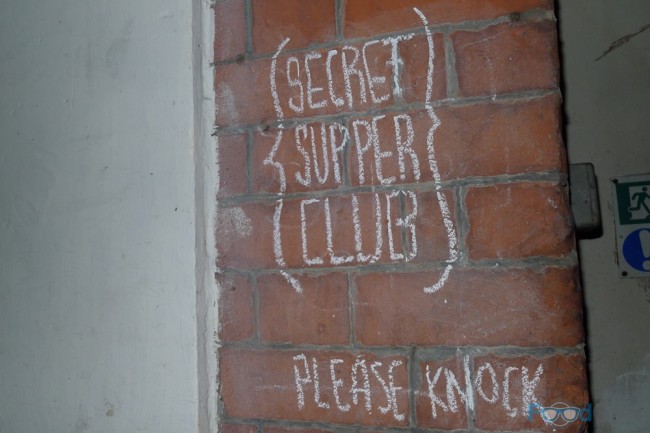 SECRET
SUPPER
CLUB
PLEASE KNOCK